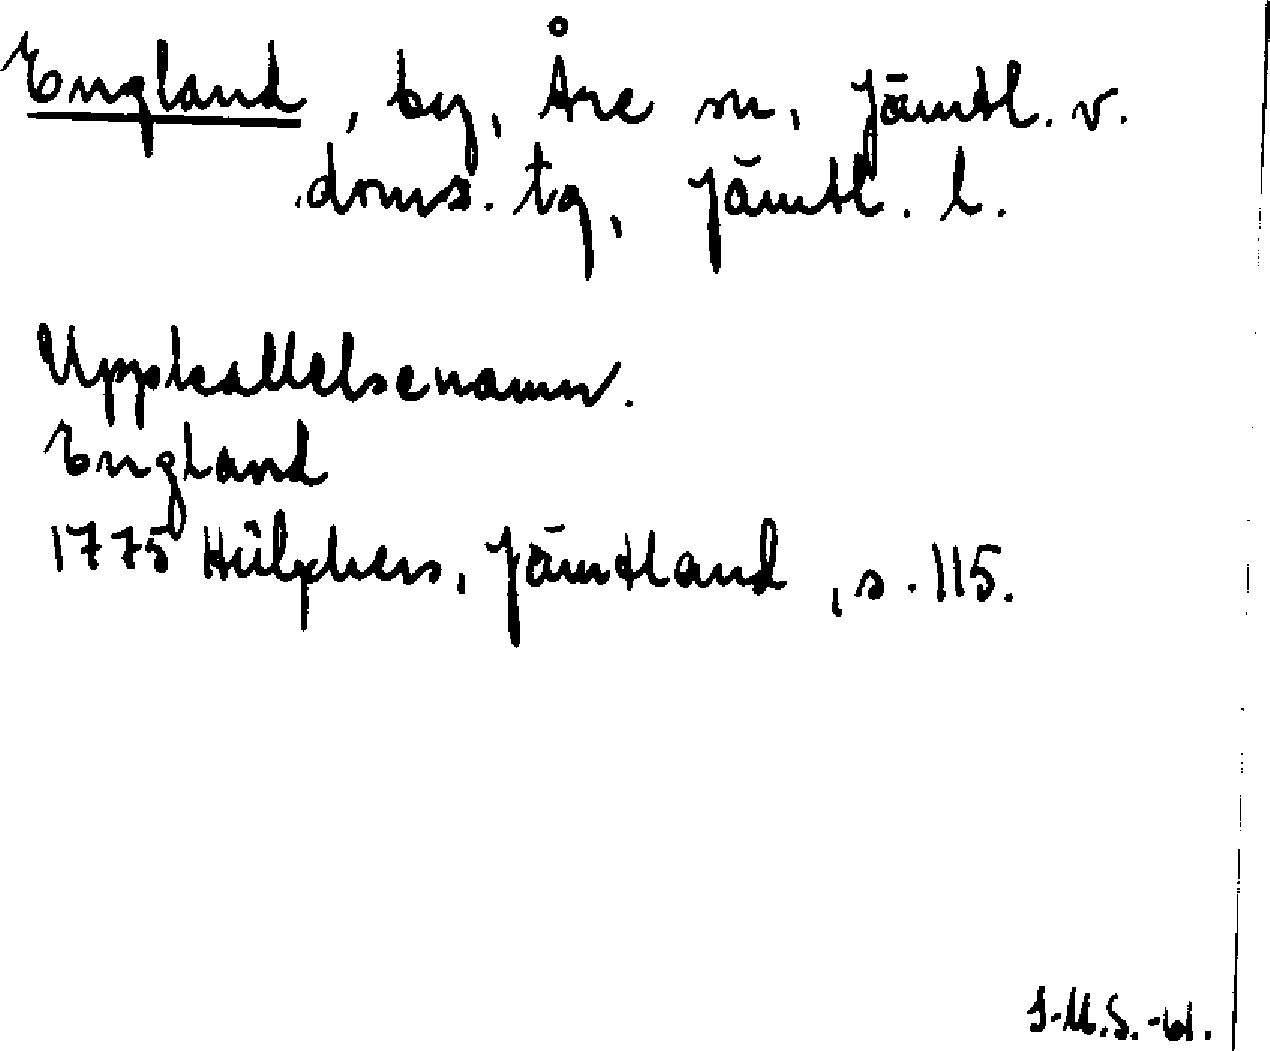 England, by, Åre sn, Jämtl. v.
doms. tg, Jämtl. l.
Uppkallelsenamn.
England
1775 Hülphers, Jämtland, s. 115.
I-M.S.-61.